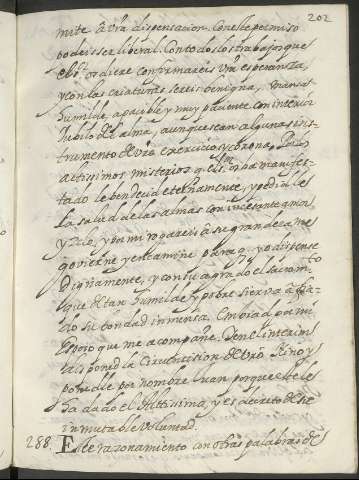 202
mite à vra dispensacion. Con este permiso
podeis ser liberal. Con todos los trabajos que
el Sr. os diere confirmareis vra esperanza,
y con las criaturas sereis benigna, mansa
humilde, apacible y muy paciente con interior
jubilo del alma, aunque sean algunas ins-
trumento de vro exercicio, y corona. Por los
altissimos misterios que el Sr. os ha manifes-
tado le bendecid eternamente, y pedidle
la salud de las almas con incesante amor
y zelo, y por mi rogareis à su grandeza me
govierne y encamine para q. yo dispense
dignamente, y con su agrado el sacram.to
que de tan humilde y pobre sierva à fia-
do su bondad inmensa. Embiad por mi
Esposo que me acompañe. En el interim
disponed la Circuncision de vro Niño y
ponedle por nombre Juan porque este le
ha dado el Altissimo, y es decreto de su
inmutable voluntad.
288. Este razonamiento con otras palabras de